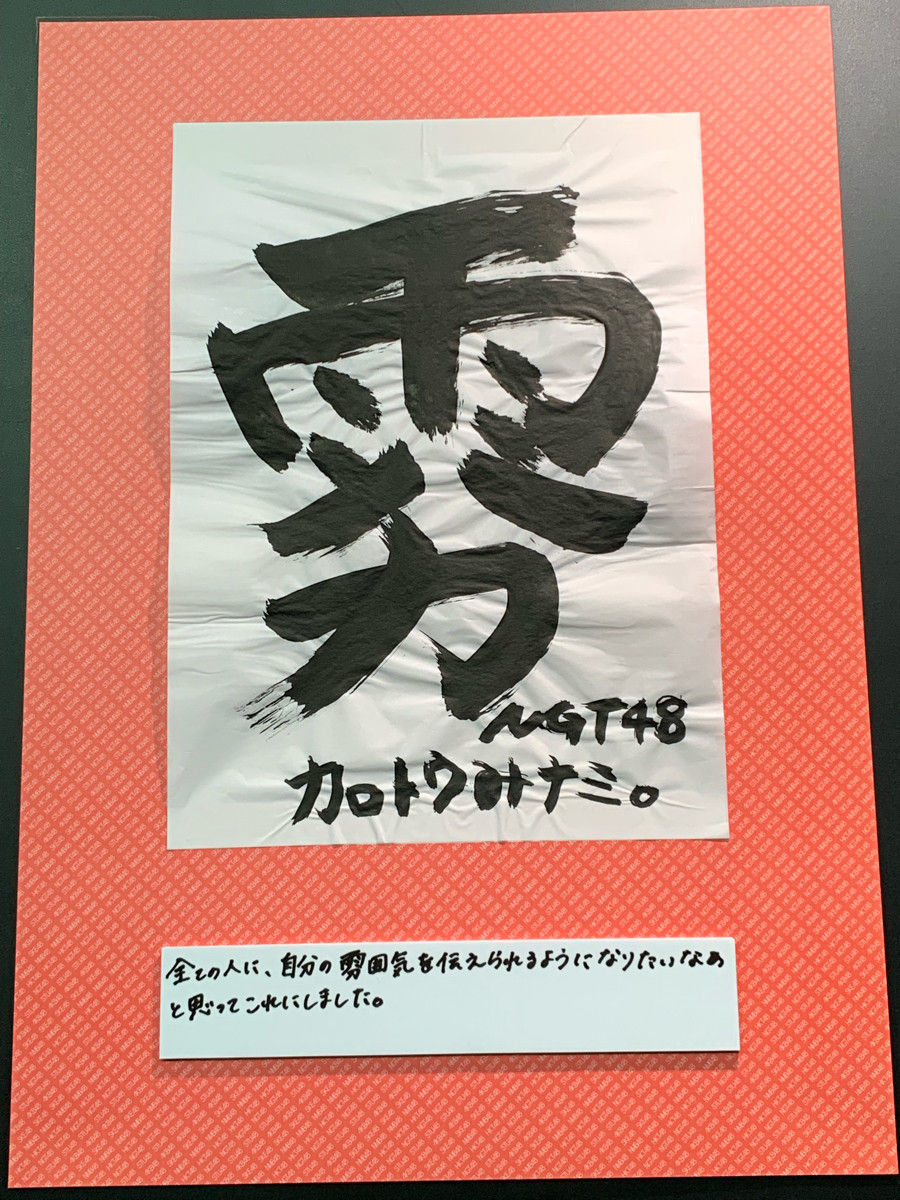 雰
NGT48
カロトウみナミ。
全ての人に、自分の雰囲気を伝えられるようになりたいなあ
と思ってこれにしました。